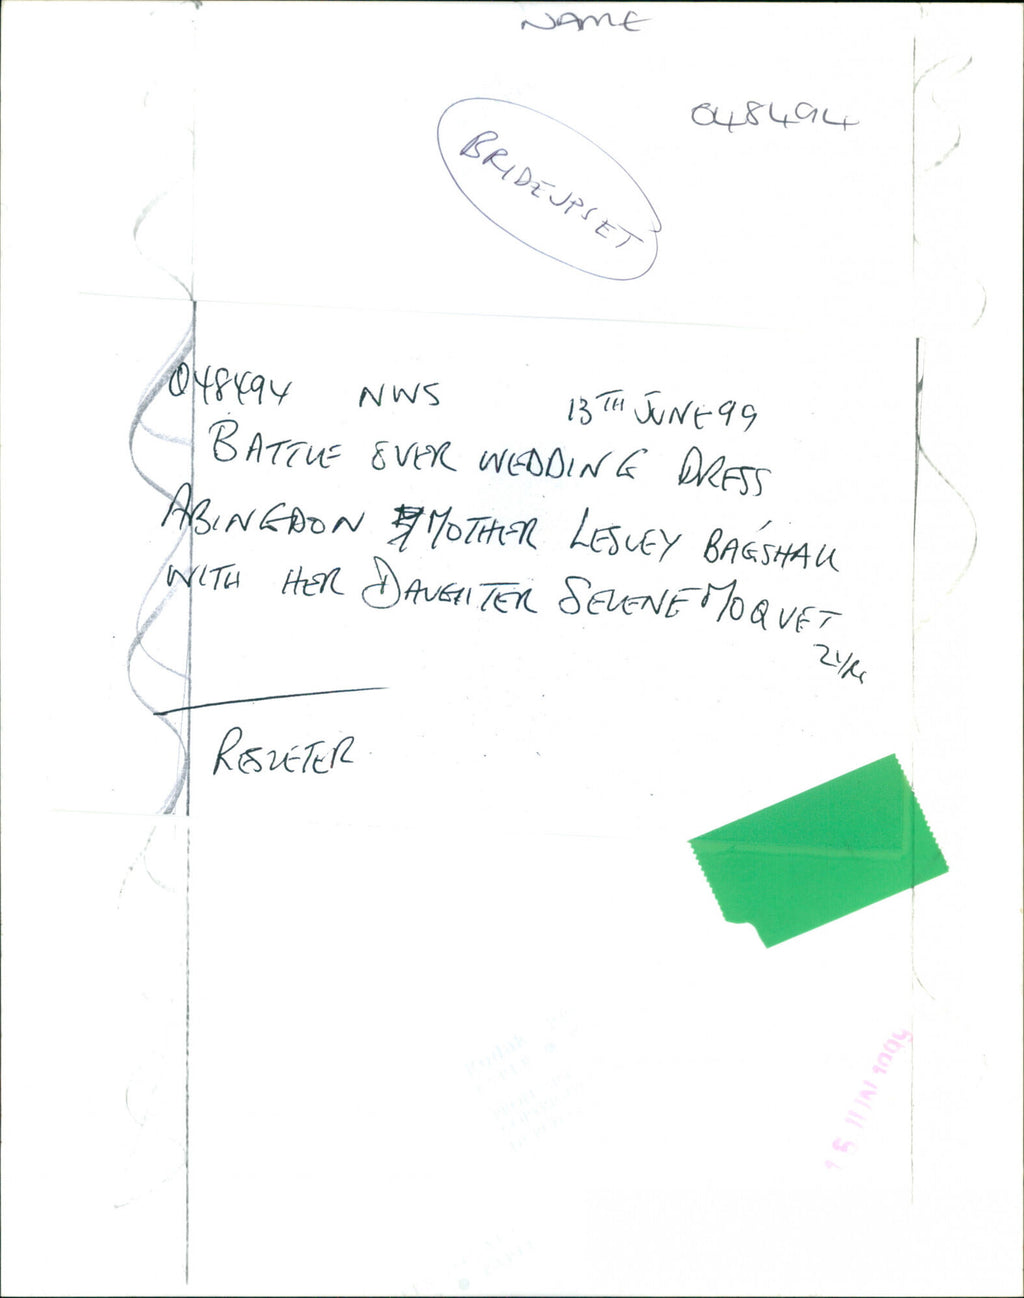 NAME
048494
BRIDEUPSET
048494 NWS 13TH JUNE 99
BATTLE OVER WEDDING DRESS
ABINGDON MOTHER LESLEY BAGSHAW
WITH HER DAUGHTER SELENE MOQUET